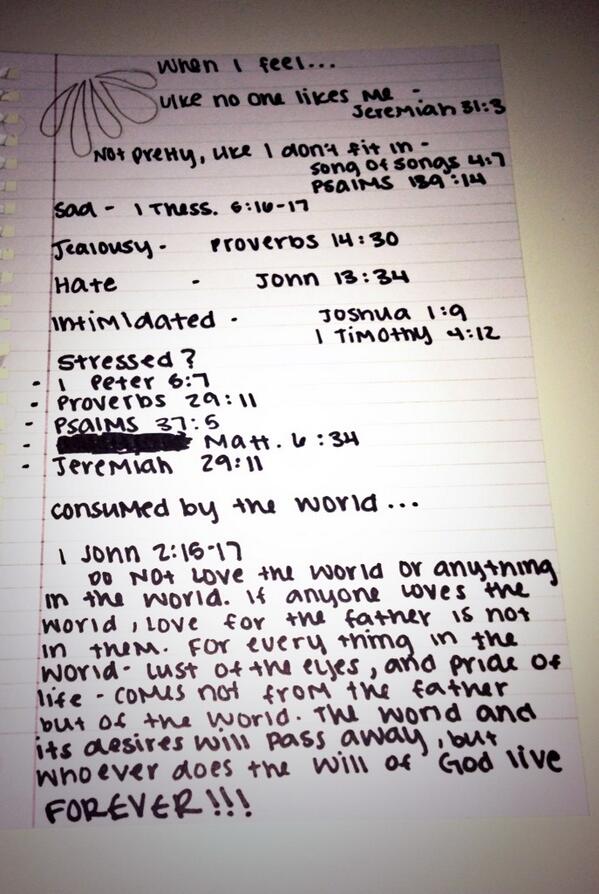 When I feel...
Like no one likes me -
Jeremiah 31:3
Not pretty, like I don't fit in -
Song of Songs 4:7
Psalms 139:14
Sad - 1 Thess. 5:16-17
Jealousy - Proverbs 14:30
Hate - John 13:34
Intimidated - Joshua 1:9
1 Timothy 4:12
Stressed?
- 1 Peter 5:7
- Proverbs 29:11
- Psalms 37:5
- Matt. 6:34
- Jeremiah 29:11
consumed by the world...
1 John 2:15-17
Do not love the world or anything
in the world. If anyone loves the
world, love for the father is not
in them. For every thing in the
world- lust of the eyes, and pride of
life - comes not from the father
but of the world. The world and
its desires will pass away, but
whoever does the will of God live
FOREVER!!!